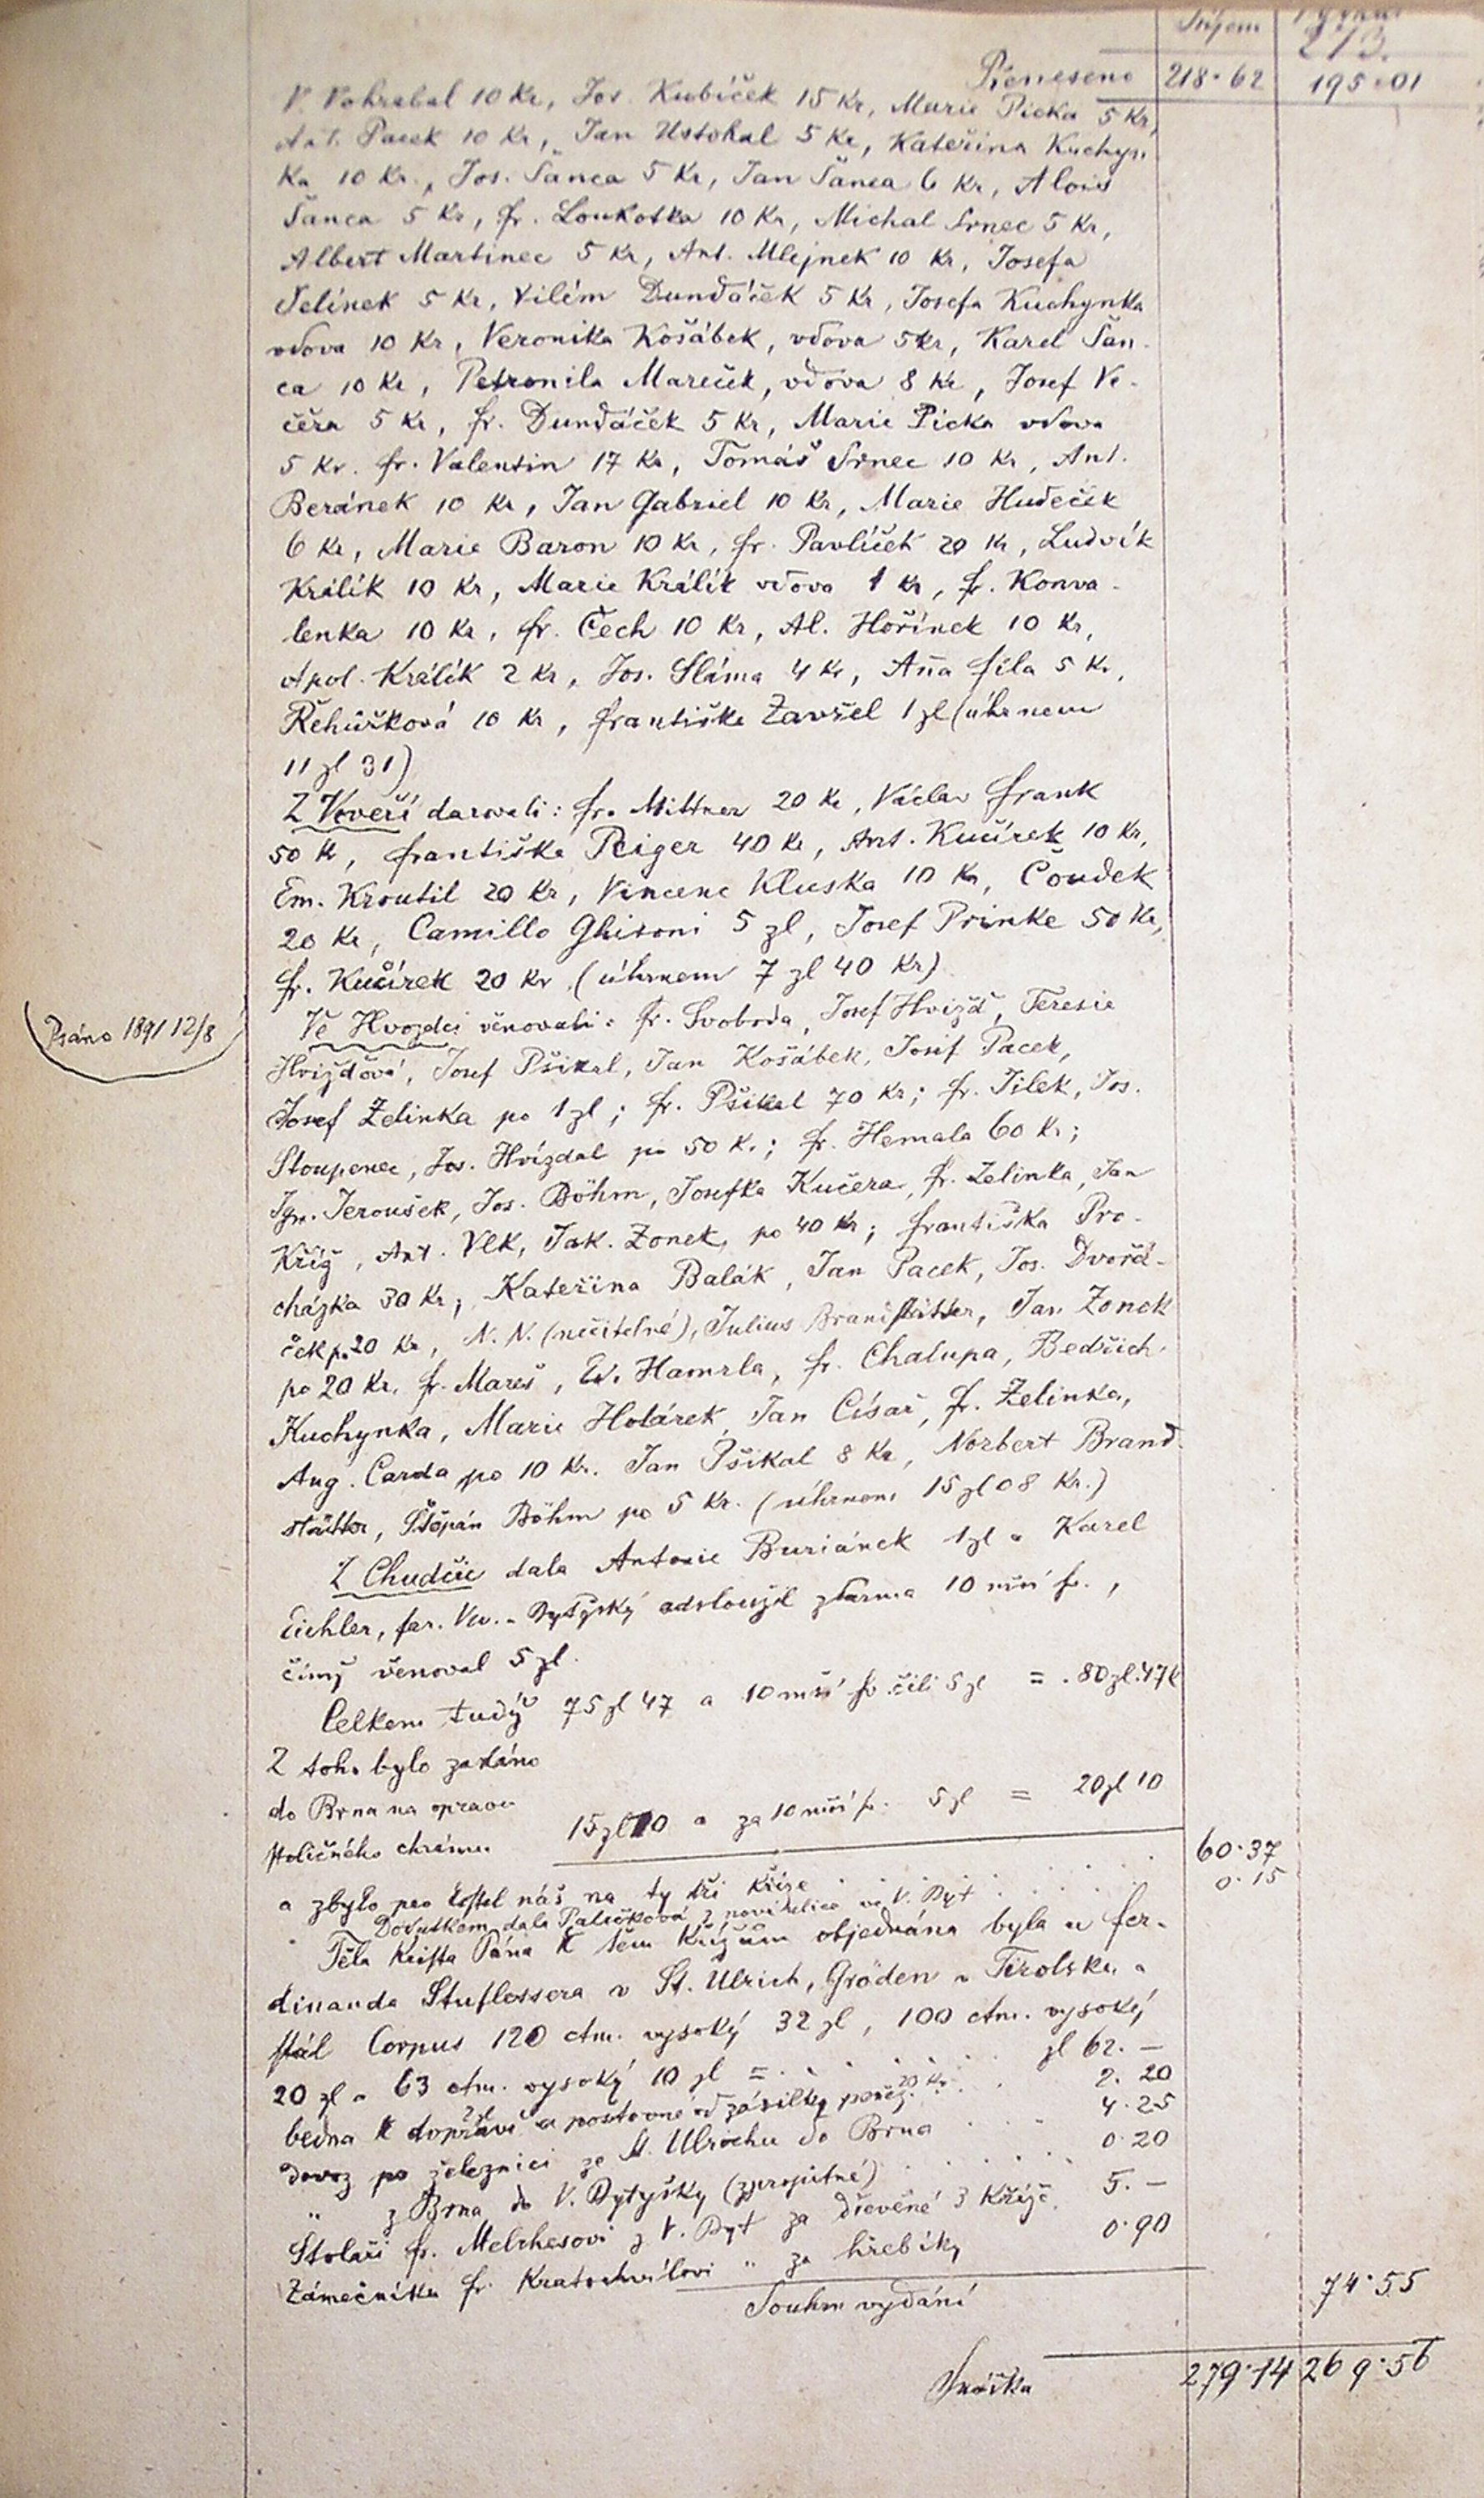 Příjem
213.
Přeneseno 218·62 195·01
V. Vohrabal 10 Kr, Jos. Kubíček 15 Kr, Marie Picka 5 Kr,
Ant. Pacek 10 Kr, Jan Ustohal 5 Kr, Kateřina Kuchyn
ka 10 Kr., Jos. Šanca 5 Kr, Jan Šanca 6 Kr, Alois
Šanca 5 Kr, fr. Loukotka 10 Kr, Michal Srnec 5 Kr,
Albert Martinec 5 Kr, Ant. Mlejnek 10 Kr, Josefa
Jelínek 5 Kr, Vilém Dunďáček 5 Kr, Josefa Kuchynka
vdova 10 Kr, Veronika Košábek, vdova 5 kr, Karel Šan-
ca 10 Kr, Petronila Mareček, vdova 8 Kr, Josef Ve-
čeřa 5 Kr, fr. Dunďáček 5 Kr, Marie Picka vdova
5 Kr. fr. Valentin 17 Kr, Tomáš Srnec 10 Kr, Ant.
Beránek 10 Kr, Jan Gabriel 10 Kr, Marie Hudeček
6 Kr, Marie Baron 10 Kr, fr. Pavlíček 20 Kr, Ludvík
Králík 10 Kr, Marie Králík vdova 1 Kr, fr. Konva-
lenka 10 Kr, fr. Čech 10 Kr, Al. Hořínek 10 Kr,
Apol. Králík 2 Kr, Jos. Sláma 4 Kr, Ana fila 5 Kr,
Řehůřková 10 Kr, františka Zavřel 1 zl (úhrnem
11 zl 31)
Z Veveří darovali: fr. Mittner 20 Kr, Václav frank
50 Kr, františka Reiger 40 Kr, Ant. Kučírek 10 Kr,
Em. Kroutil 20 Kr, Vincenc Kluska 10 Kr, Čoudek
20 Kr, Camillo Ghisoni 5 zl, Josef Prinke 50 Kr,
fr. Kučírek 20 Kr. (úhrnem 7 zl 40 Kr)
Psáno 1891 12/8
Ve Hvozdci věnovali: fr. Svoboda, Josef Hvižď, Teresie
Hvižďová, Josef Pšikal, Jan Košábek, Josif Pacek,
Josef Zelinka po 1 zl; fr. Pšikal 70 Kr; fr. Jilek, Jos.
Stoupenec, Jos. Hvízdal po 50 Kr.; fr. Hemala 60 Kr;
Ign. Jeroušek, Jos. Böhm, Josefka Kučera, fr. Zelinka, Jan
Kříž, Ant. Vlk, Jak. Zonek, po 40 Kr; františka Pro-
cházka 30 Kr; Kateřina Balák, Jan Pacek, Jos. Dvořá-
ček p. 20 Kr, N. N. (nečitelné), Julius, Jan Zonek
po 20 Kr. fr. Mareš, Hamrla, fr. Chalupa, Bedřich
Kuchynka, Marie Holárek, Jan Císař, fr. Zelinka,
Aug. Carda po 10 Kr. Jan Pšikal 8 Kr, Norbert Brand-
stätter, Štěpán Böhm po 5 Kr. (úhrnem 15 zl 08 Kr.)
Z Chudčic dala Antonie Buriánek 1 zl a Karel
Eichler, far. Vev.-Bytýšský odsloužil zdarma 10 mší fr.,
čímž věnoval 5 zl.
Celkem tudíž 75 zl 47 a 10 mší fr. čili 5 zl = 80 zl. 47 k
Z toho bylo zasláno
do Brna na opravu
stoličného chrámu 15 zl 10 a za 10 mší fr. 5 zl = 20 zl 10
a zbylo pro kostel náš na ty tři kříže 60·37
Dodatkem dala Palečková z V. Byt 0·15
Těla Krista Pána k těm křížům objednána byla u fer-
dinanda Stuflessera v St. Ulrich, Gröden v Tirolsku a
stál Corpus 120 ctm. vysoký 32 zl, 100 ctm. vysoký
20 zl a 63 ctm. vysoký 10 zl = zl 62. —
bedna k dopravě 2 zl a poštovné od zásilky peněz. 20 Kr. 2. 20
dovoz po železnici ze St. Ulrichu do Brna 4·25
" z Brna do V. Bytyšky (zpropitné) 0·20
Stolaři fr. Melchesovi z V. Byt za dřevěné 3 kříže 5. —
Zámečníku fr. Kratochvílovi " za hřebíky 0·90
Souhrn vydání 74·55
Snáška 279·14 269·56